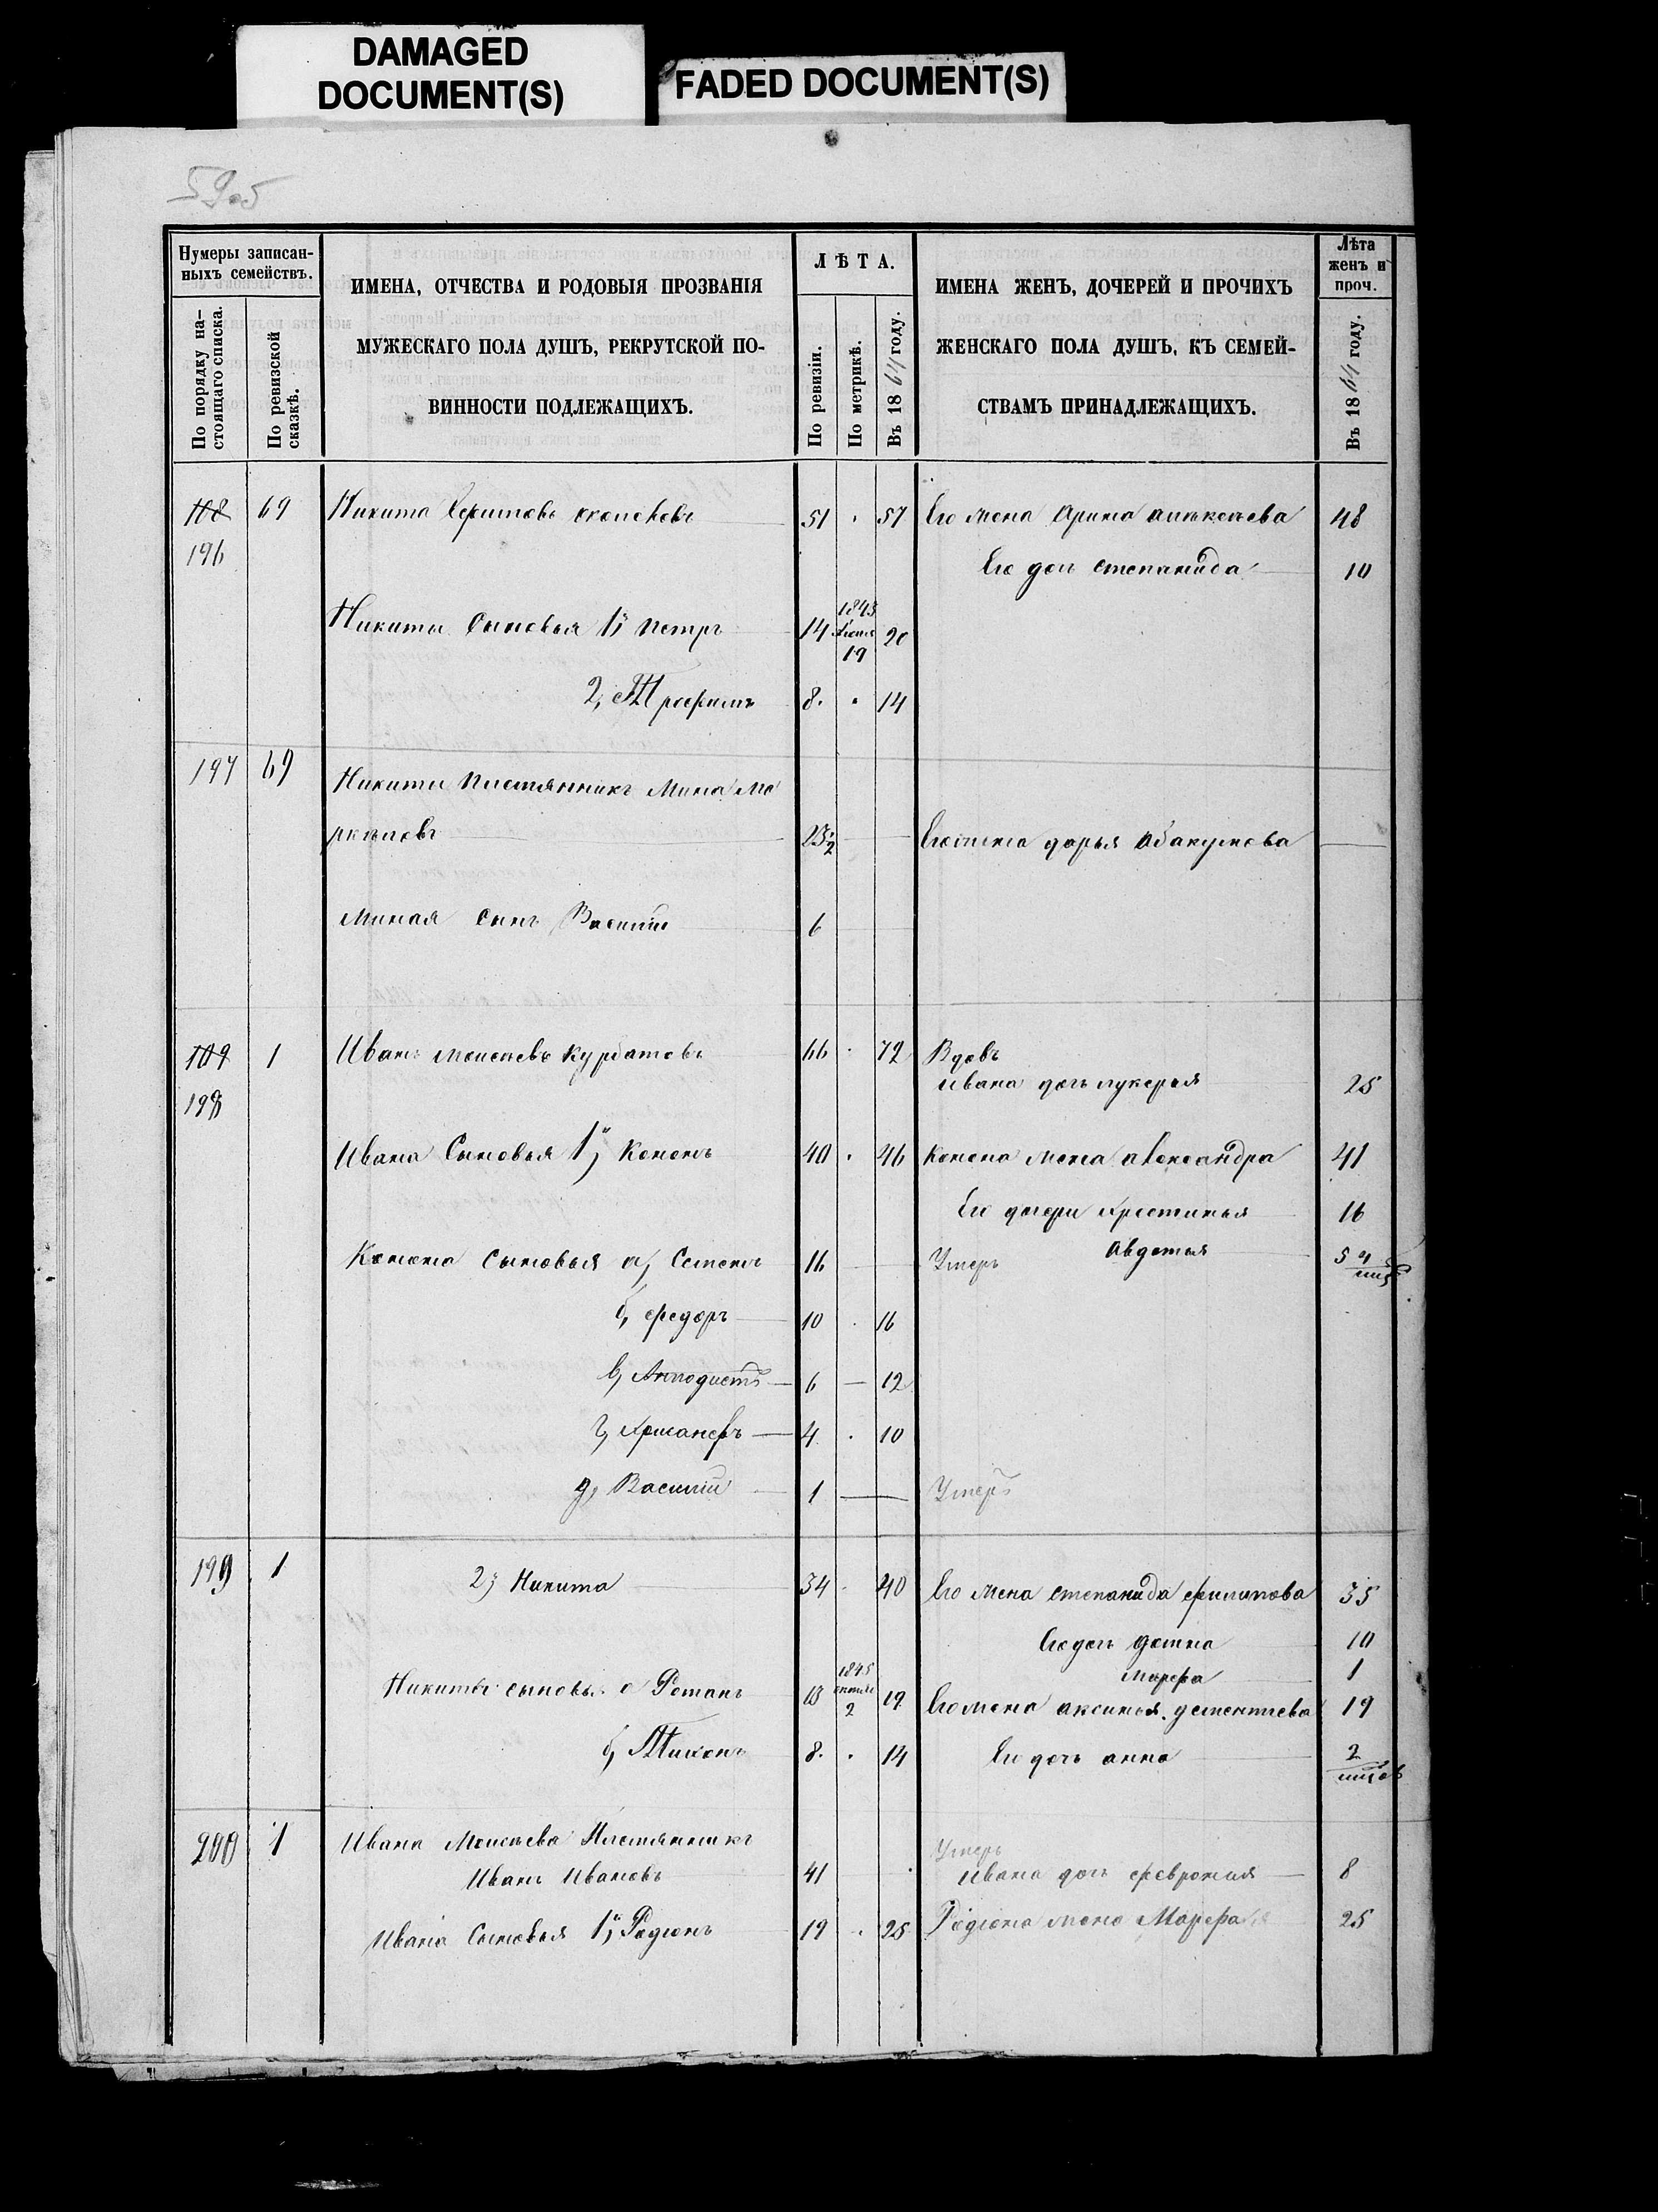 DAMAGED
DOCUMENT(S)
FADED DOCUMENT(S)
Нумеры записан-
ныхъ семействъ.
По порядку на-
стоящаго списка.
По ревизской
сказкѣ.
ИМЕНА, ОТЧЕСТВА И РОДОВЫЯ ПРОЗВАНІЯ
МУЖЕСКАГО ПОЛА ДУШЪ, РЕКРУТСКОЙ ПО-
ВИННОСТИ ПОДЛЕЖАЩИХЪ.
ЛѢТА.
По ревизіи.
По метрикѣ.
Въ 1864 году.
ИМЕНА ЖЕНЪ, ДОЧЕРЕЙ И ПРОЧИХЪ
ЖЕНСКАГО ПОЛА ДУШЪ, КЪ СЕМЕЙ-
СТВАМЪ ПРИНАДЛЕЖАЩИХЪ.
Лѣта
женъ и
проч.
Въ 1864 году.
108 69 Никита 51 57 Его жена Арина 48
196 Его доч Степанида 10
Никиты Сыновья 1й Петръ 14 1843 19 20
2, Трофимъ 8 14
197 69 Никиты Племянникъ Мина
23½ Его жена дарья Абакумова
Миная Сынъ Василій 6
109 1 Иванъ Моисеевъ Курбатовъ 66 72 Вдовъ
198 Ивана дочь лукерья 25
Ивана Сыновья 1й, Кононъ 40 46 Конона жена александра 41
Его дочери Христинья 16
Конона Сыновья а, Семенъ 16 Умеръ Авдотья
б, Федоръ 10 16
в, 6 12
г, 4 10
д, Василій 1 Умеръ
199 1 2й Никита 34 40 Его жена степанида филипова 35
Его доч 10
Марфа 1
Никиты сыновья а Романъ 13 1845 2 19 Его жена аксинья дементиева 19
б, Тихонъ 8 14 Его дочь анна 2
200 1 Ивана Моисѣева Племянникъ Умеръ
Иванъ Ивановъ 41 Ивана доч феврония 8
Ивана Сыновья 1й, Родіонъ 19 25 Родіона жена Марфа 25